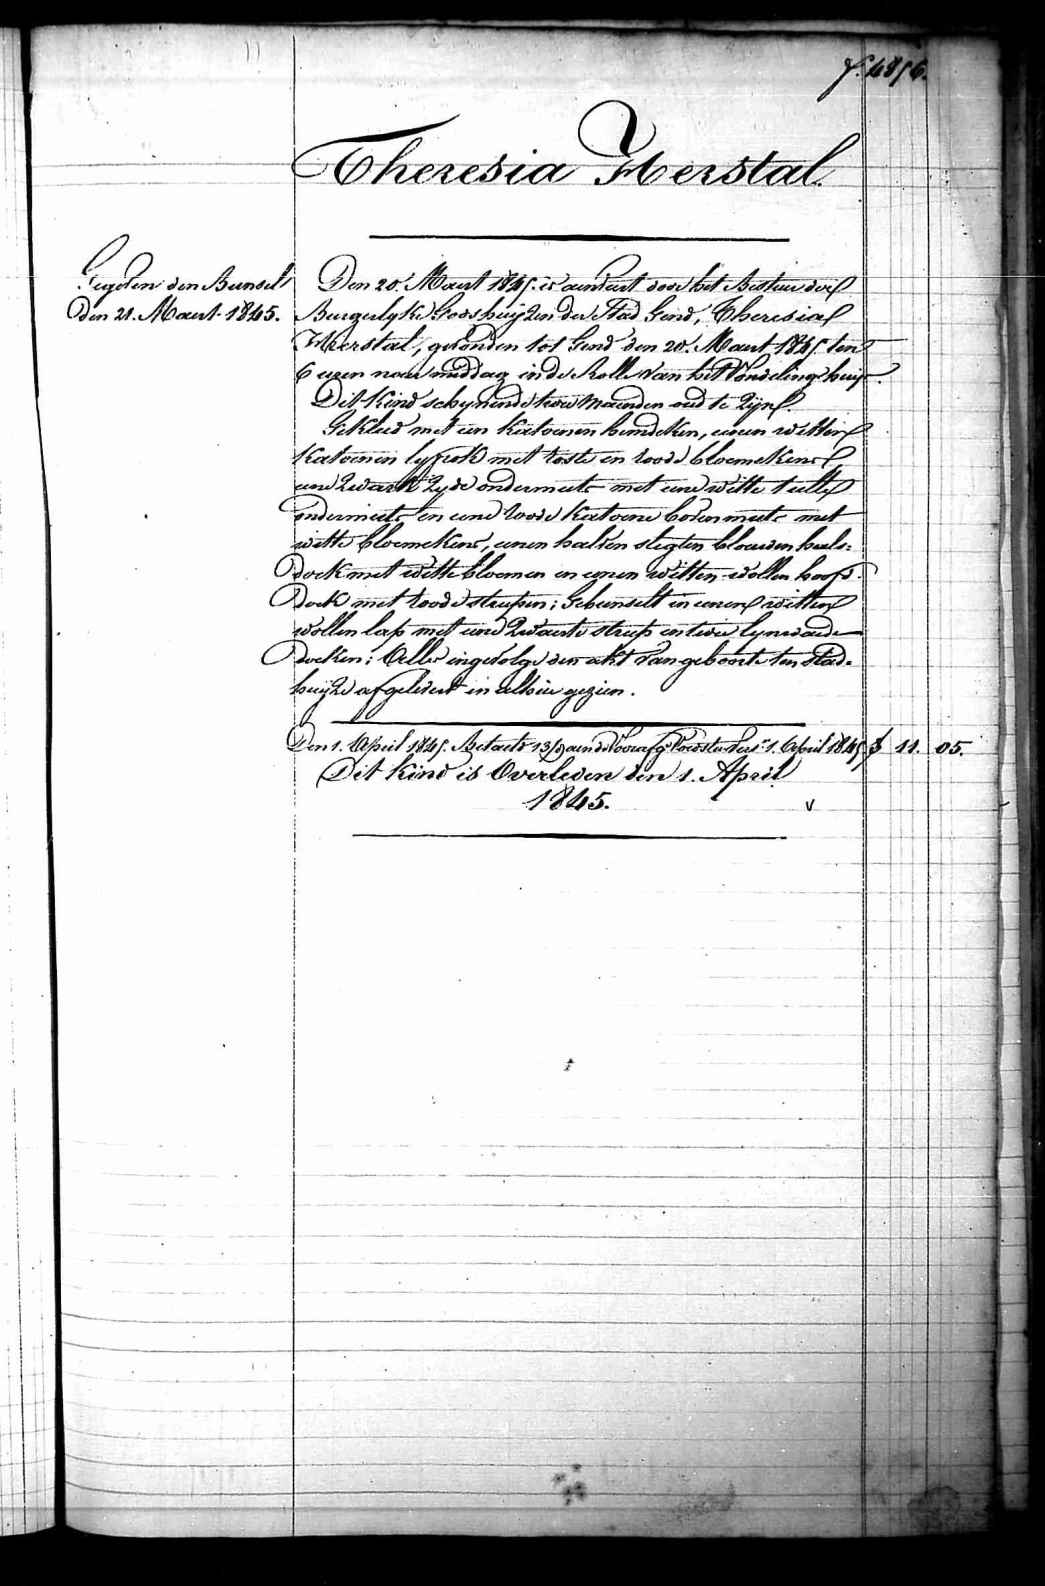 f. 4856.
Theresia Herstal.
Gegeven den Bunsel
den 21. Maert 1845.
Den 20. Maert 1845. is aenveirt door het Bestuer deir
Burgerlyke Godshuijzen der Stad Gend, Theresia
Herstal, gevonden tot Gend den 20. Maert 1845 ten
6 uren naer middag in de Rolle van het Vondelinge huijs.
Dit Kind schynende twee Maenden oud te Zijn.
Gekleed met een Katoenen hemdeken, eenen witten
Katoenen lyfrok met roste en roode bloemekens
eene Zwarte Zyde ondermuts met eene witte tulle
ondermuts en eene roode Katoene bovenmuts met
witte bloemekens, eenen halven slegten blauwen hals-
doek met witte bloemen en eenen witten wollen hoofd-
doek met roode strepen; Gebunselt in eenen witten
wollen lap met eene Zwarte streep en twee lynwaede
doeken; Alles ingevolge den akt van geboorte ten stad-
huijze afgelevert en alhier gezien.
Den 1. April 1845. Betaelt 13/9 aen de Voorafge Voedster sus 1. April 1845 f 11. 05.
Dit Kind is Overleden den 1. April
1845.
v